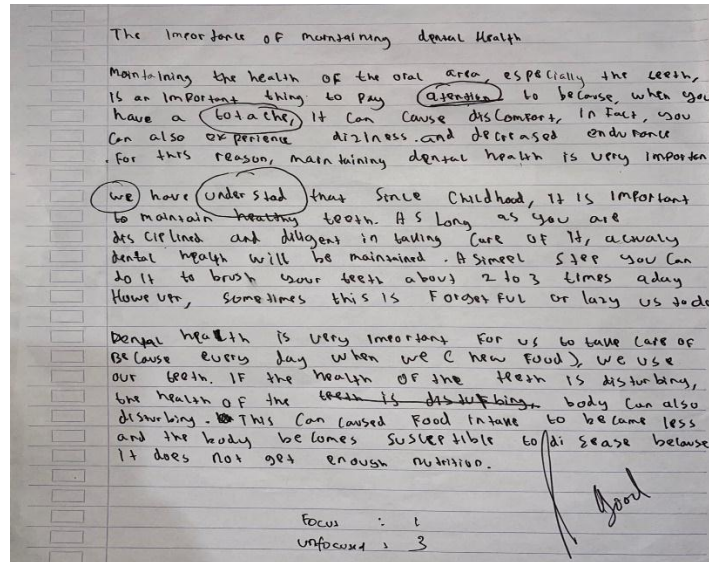 The Importance of maintaining dental Health
Maintaining the health of the oral area, especially the teeth,
is an important thing to pay atention to because, when you
have a totache, it can cause discomfort, In fact, you
Can also experience dizlness. and decreased endurance
. For this reason, maintaining dental health is very importan
we have understad that since childhood, it is important
to maintain healthy teeth. As long as you are
disciplined and diligent in taking care of it, actualy
dental health will be maintained. A simpel step you can
do it to brush your teeth about 2 to 3 times aday
However, sometimes this is Forget ful or lazy us to do
Dental health is very important For us to take care of
Because every day when we (hew Food), we use
our teeth. IF the health of the teeth is disturbing,
the health of the teeth is disturbing, body can also
disturbing. This Can caused Food intake to became less
and the body becomes susceptible to disease because
It does not get enough nutrition.
good
Focus : 1
unfocused : 3